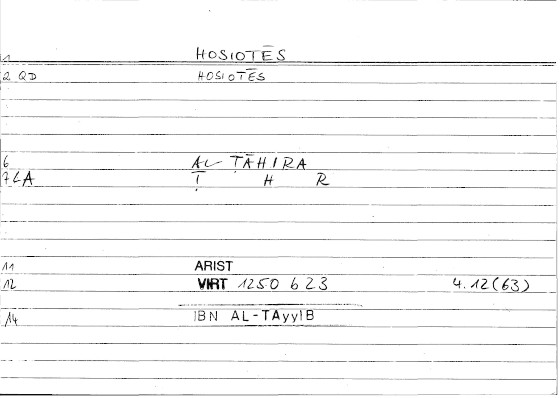 1 HOSIOTĒS
2 QD HOSIOTĒS
6 AL ṬĀHIRA
7 LA Ṭ H R
11 ARIST
12 VIRT 1250 b 23 4.12(63)
14 IBN AL-TAyyIB